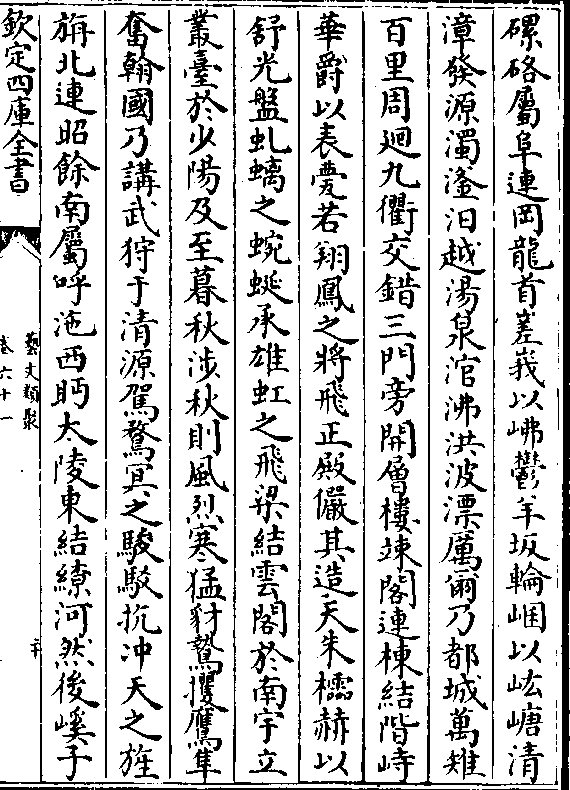 磥硌屬阜連岡龍首嵳峩以岪鬱羊坂輪崓以峵嵣清
漳發源濁滏汨越湯泉涫沸洪波漂厲爾乃都城萬雉
百里周迴九衢交錯三門旁開層樓竦閣連棟結階峙
華爵以表甍若翔鳳之將飛正殿儼其造天朱櫺赫以
舒光盤虬螭之蜿蜒承雄虹之飛梁結雲閣於南宇立
叢臺於少陽及至暮秋涉秋則風烈寒猛豺鷙攫鷹隼
奮翰國乃講武狩于清源駕鶩冥之駿駮抗冲天之旌
旃北連昭餘南屬呼沲西眄太陵東結繚河然後嵠子
欽定四庫全書
藝文類聚
卷六十一